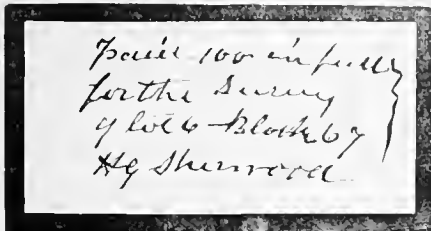 Paid 100 in full
for the Survey
of lot 6 Block 67
HG Sherwood